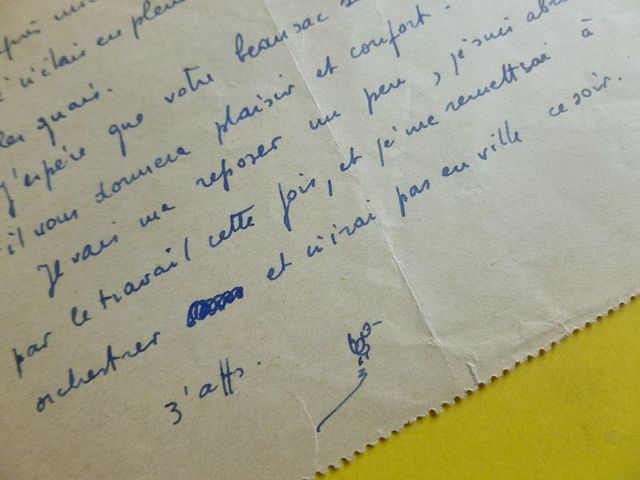 n'était en plein
les quais.
J'espère que votre beau sac
il vous donnera plaisir et confort.
Je vais me reposer un peu, je suis
par le travail cette fois, et je me remettrai à
orchestrer et n'irai pas en ville ce soir.